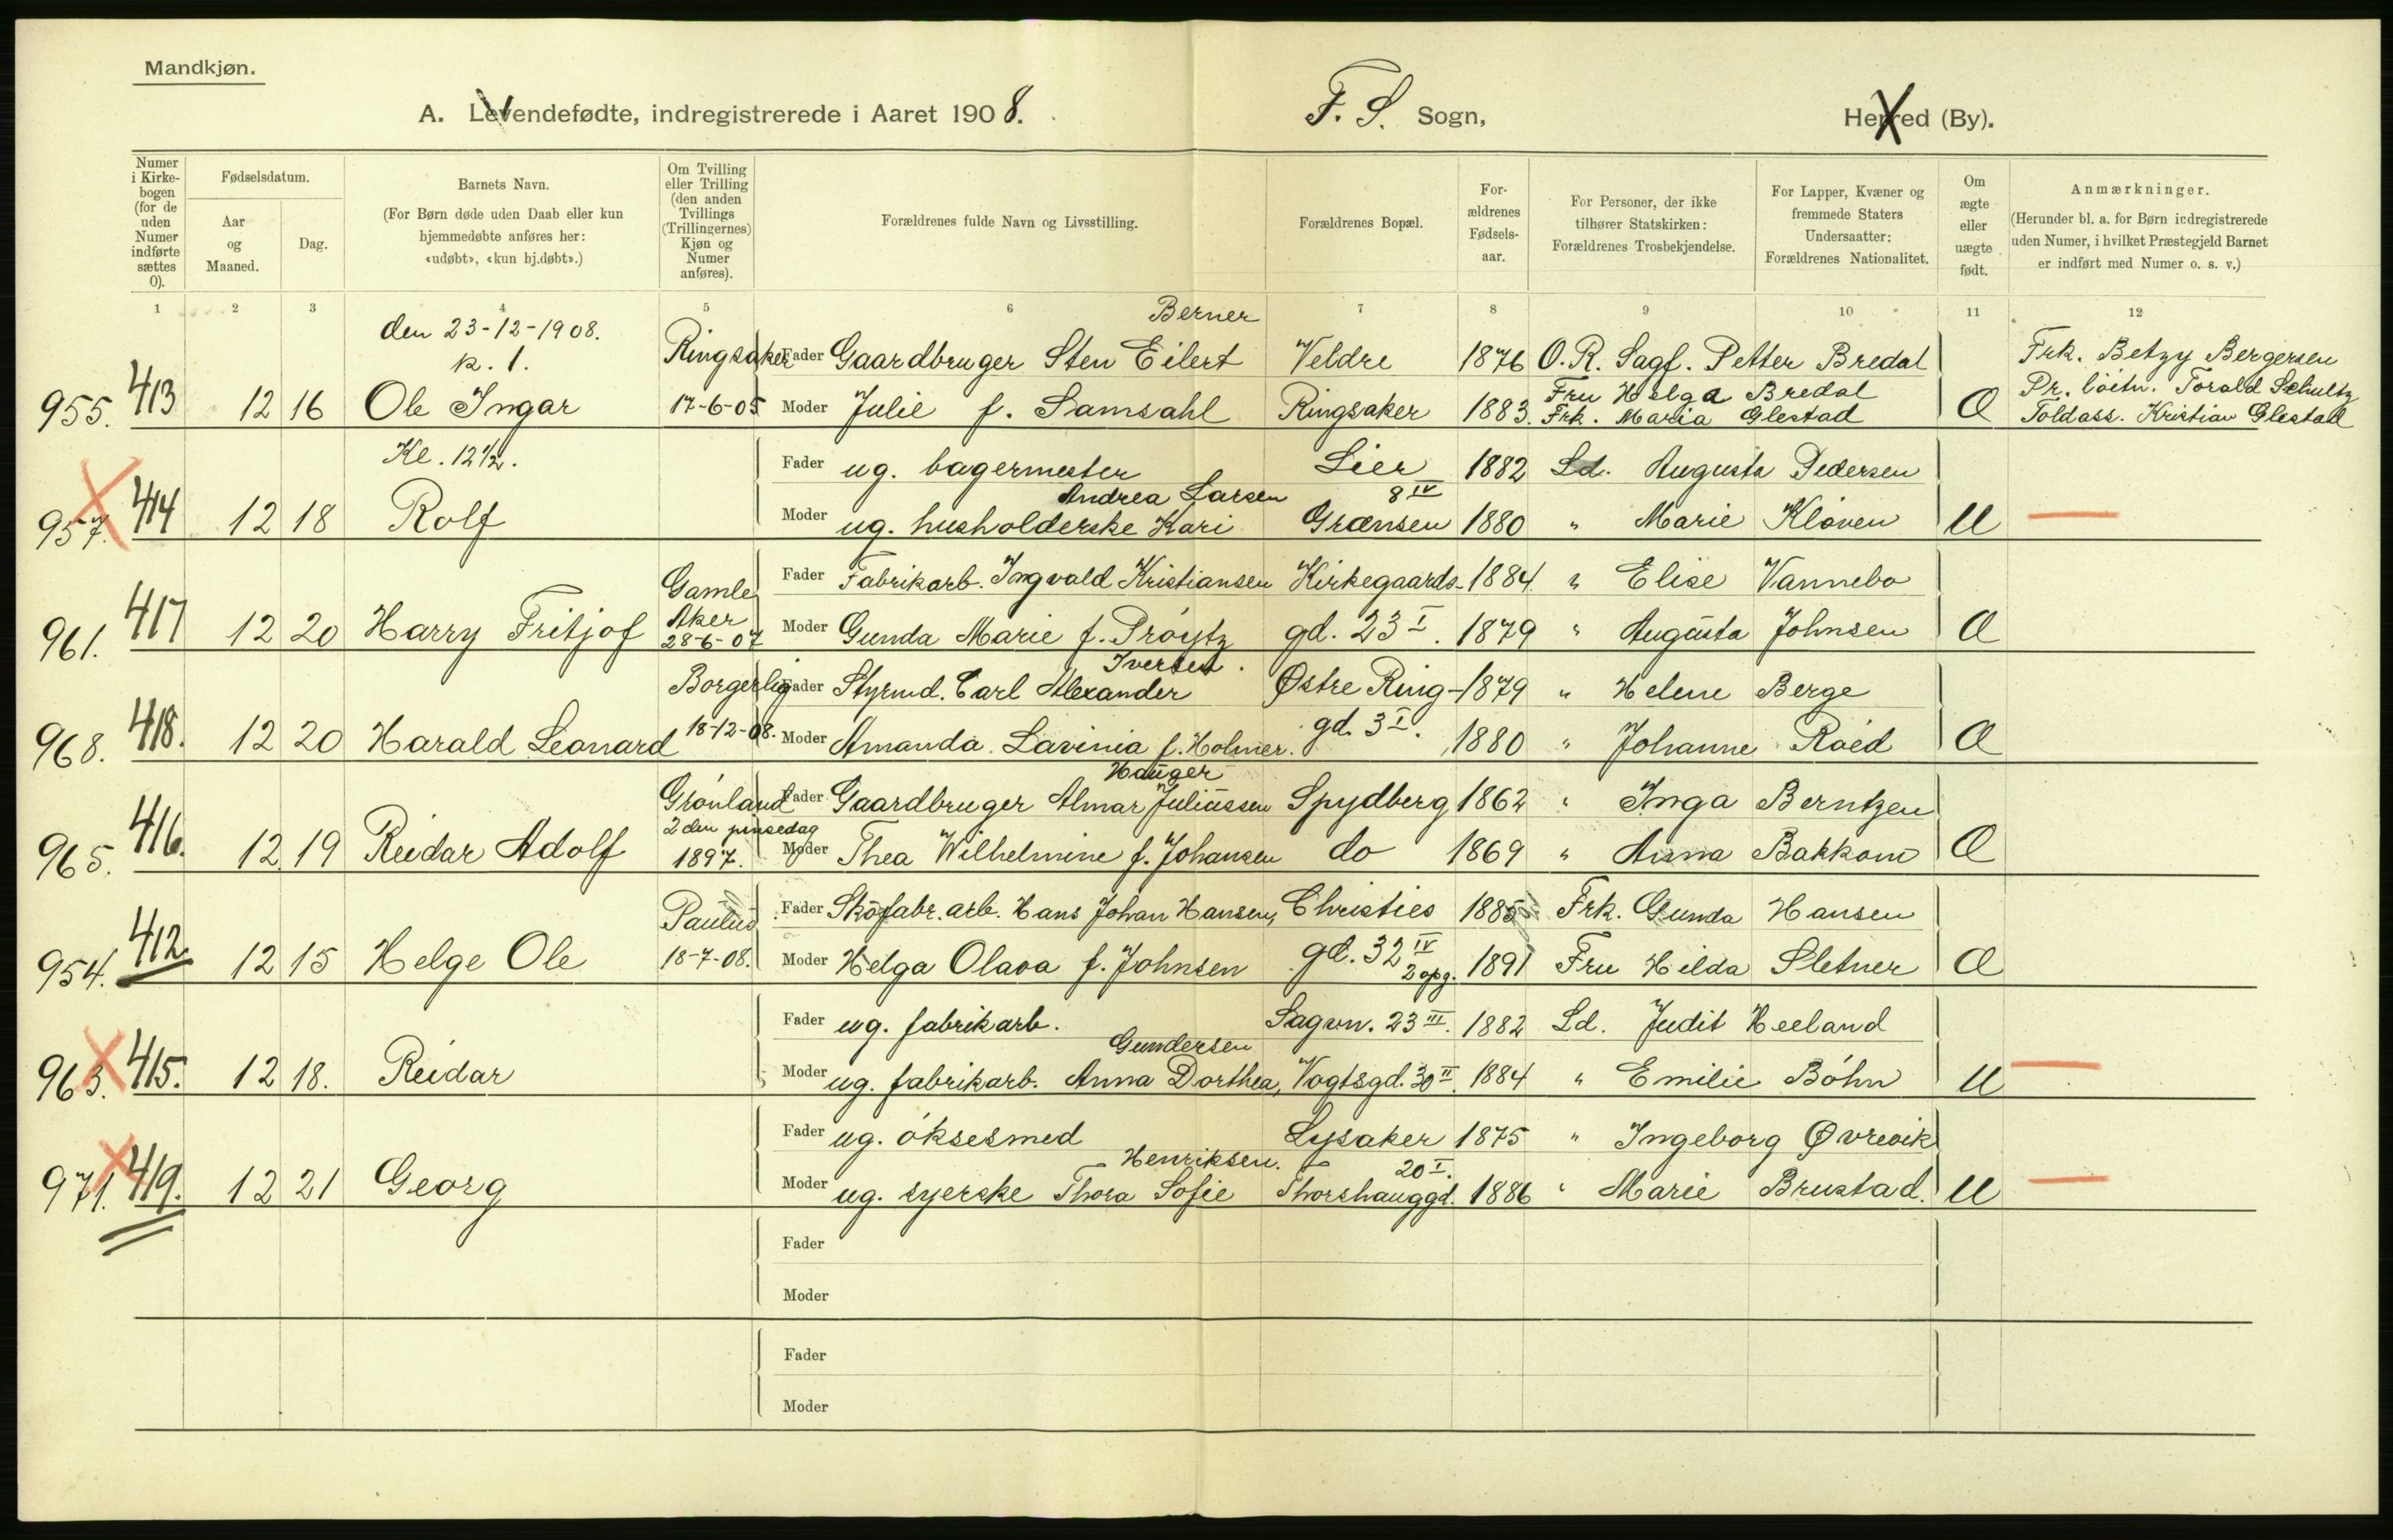 Mandkjøn.
A. Levendefødte, indregistrerede i Aaret 1908. F. S. Sogn, Herred (By).
Numer i Kirkebogen (for de uden Numer indførte sættes 0).
Fødselsdatum.
Aar og Maaned.
Dag.
Barnets Navn.
(For Børn døde uden Daab eller kun hjemmedøbte anføres her: «udøbt», «kun hj.døbt».)
Om Tvilling eller Trilling (den anden Tvillings (Trillingernes) Kjøn og Numer anføres).
Forældrenes fulde Navn og Livsstilling.
Forældrenes Bopæl.
Forældrenes Fødselsaar.
For Personer, der ikke tilhører Statskirken: Forældrenes Trosbekjendelse.
For Lapper, Kvæner og fremmede Staters Undersaatter: Forældrenes Nationalitet.
Om ægte eller uægte født.
Anmærkninger.
(Herunder bl. a. for Børn icdregistrerede uden Numer, i hvilket Præstegjeld Barnet er indført med Numer o. s. v.)
1 2 3 4 5 6 7 8 9 10 11 12
den 23-12-1908. Berner
k. 1. Ringsaker Fader Gaardbruger Sten Eilert Veldre 1876 O. R. Sagf. Petter Bredal Frk. Betzy Bergersen
Fru Helga Bredal Pr. löitn. Torald Schultz
955. 413 12 16 Ole Ingar 17-6-05 Moder Julie f. Samsahl Ringsaker 1883. Frk. Maria Glestad O Toldass. Kristian Glestad
Kl. 12 1/2. Fader ug. bagermester Lier 1882 Ld. Augusta Pedersen
Andrea Larsen 8 IV
957. 414 12 18 Rolf Moder ug. husholderske Kari Grænsen 1880 " Marie Klöven U
Gamle Fader Fabrikarb. Ingvald Kristiansen Kirkegaards- 1884. " Elise Vannebo
Aker
961. 417 12 20 Harry Fritjof 28-6-07 Moder Gunda Marie f. Pröytz gd. 23 I. 1879 " Augusta Johnsen O
Iversen.
Borgerlig Fader Styrmd. Carl Alexander Østre Ring- 1879 " Helene Berge
968. 418. 12 20 Harald Leonard 18-12-08. Moder Amanda Lavinia f. Holmer. gd. 3 I. 1880 " Johanne Röed O
Hauger
Grönland Fader Gaardbruger Almar Juliussen Spydberg 1862 " Inga Berntzen
2den pinsedag
965. 416. 12 19 Reidar Adolf 1897. Moder Thea Wilhelmine f. Johansen do 1869 " Anna Bakkom O
Paulus Fader Sköfabr. arb. Hans Johan Hansen, Christies 1885 Frk. Gunda Hansen
954. 412. 12 15 Helge Ole 18-7-08. Moder Helga Olava f. Johnsen gd. 32 IV 2 opg. 1891 Fru Hilda Sletner O
Fader ug. fabrikarb. Sagvn. 23 III. 1882 Ld. Judit Heeland
Gundersen
963. 415. 12 18. Reidar Moder ug. fabrikarb. Anna Dorthea, Vogtsgd. 30 II. 1884 " Emilie Böhn U
Fader ug. öksesmed Lysaker 1875 " Ingeborg Øvrevik
Henriksen. 20 I.
971. 419. 12 21 Georg Moder ug. syerske Thora Sofie Thorshauggd. 1886 " Marie Brustad. U
Fader
Moder
Fader
Moder